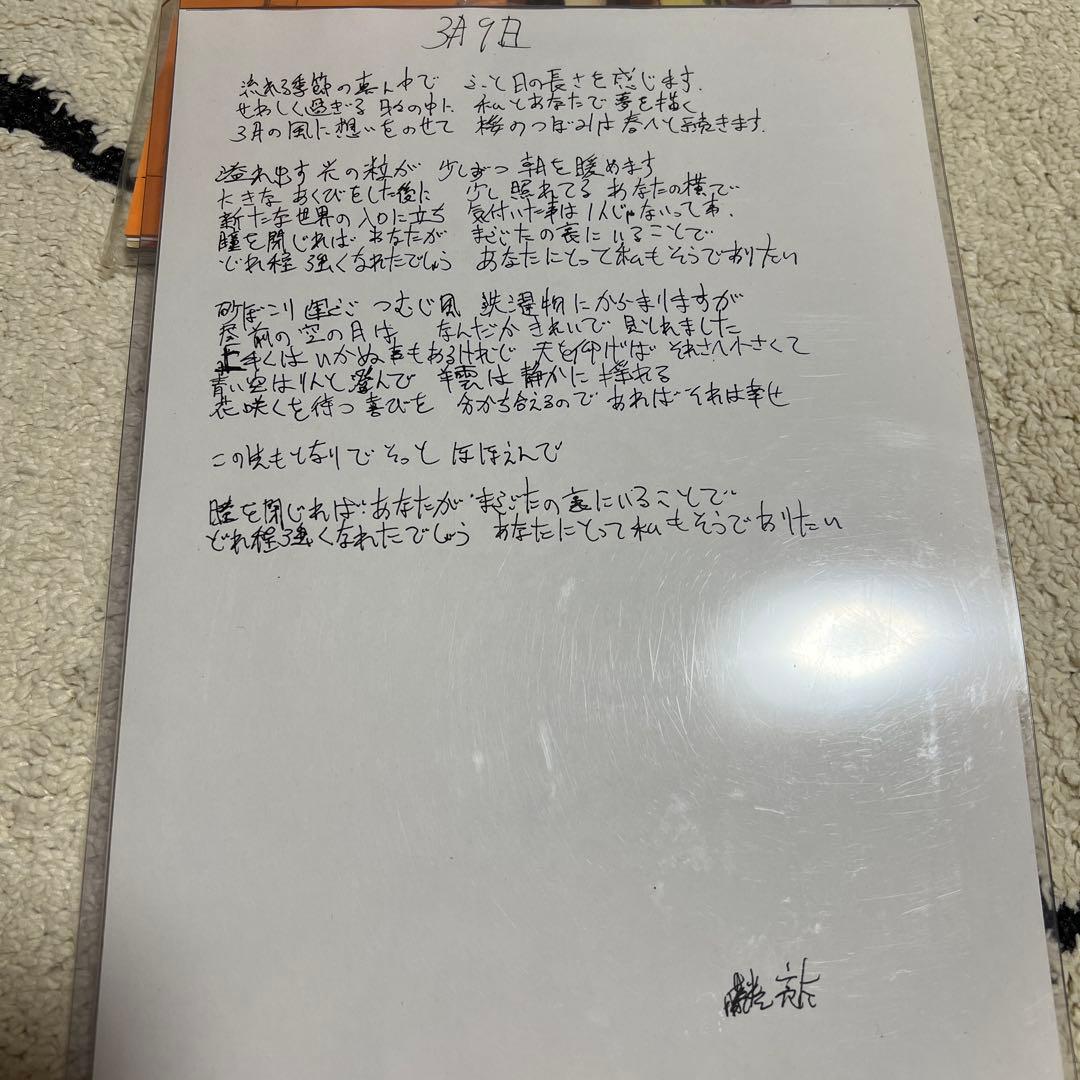 3月9日
流れる季節の真ん中で ふと日の長さを感じます.
せわしく過ぎる日々の中に 私とあなたで夢を描く
3月の風に想いをのせて 桜のつぼみは春へと続きます.
溢れ出す光の粒が 少しずつ朝を暖めます
大きなあくびをした後に 少し照れてるあなたの横で
新たな世界の入口に立ち 気付いた事は1人じゃないって事.
瞳を閉じれば あなたが まぶたの裏にいることで
どれ程強くなれたでしょう あなたにとって私もそうでありたい
砂ぼこり運ぶ つむじ風 洗濯物にからまりますが
昼前の空の月は なんだかきれいで 見とれました
上手くはいかぬ事もあるけれど 天を仰げば それさえ小さくて
青い空はりんと澄んで 羊雲は静かに揺れる
花咲くを待つ喜びを 分かち合えるのであれば それは幸せ
この先もとなりで そっと ほほえんで
瞳を閉じれば あなたが まぶたの裏にいることで
どれ程強くなれたでしょう あなたにとって私もそうでありたい